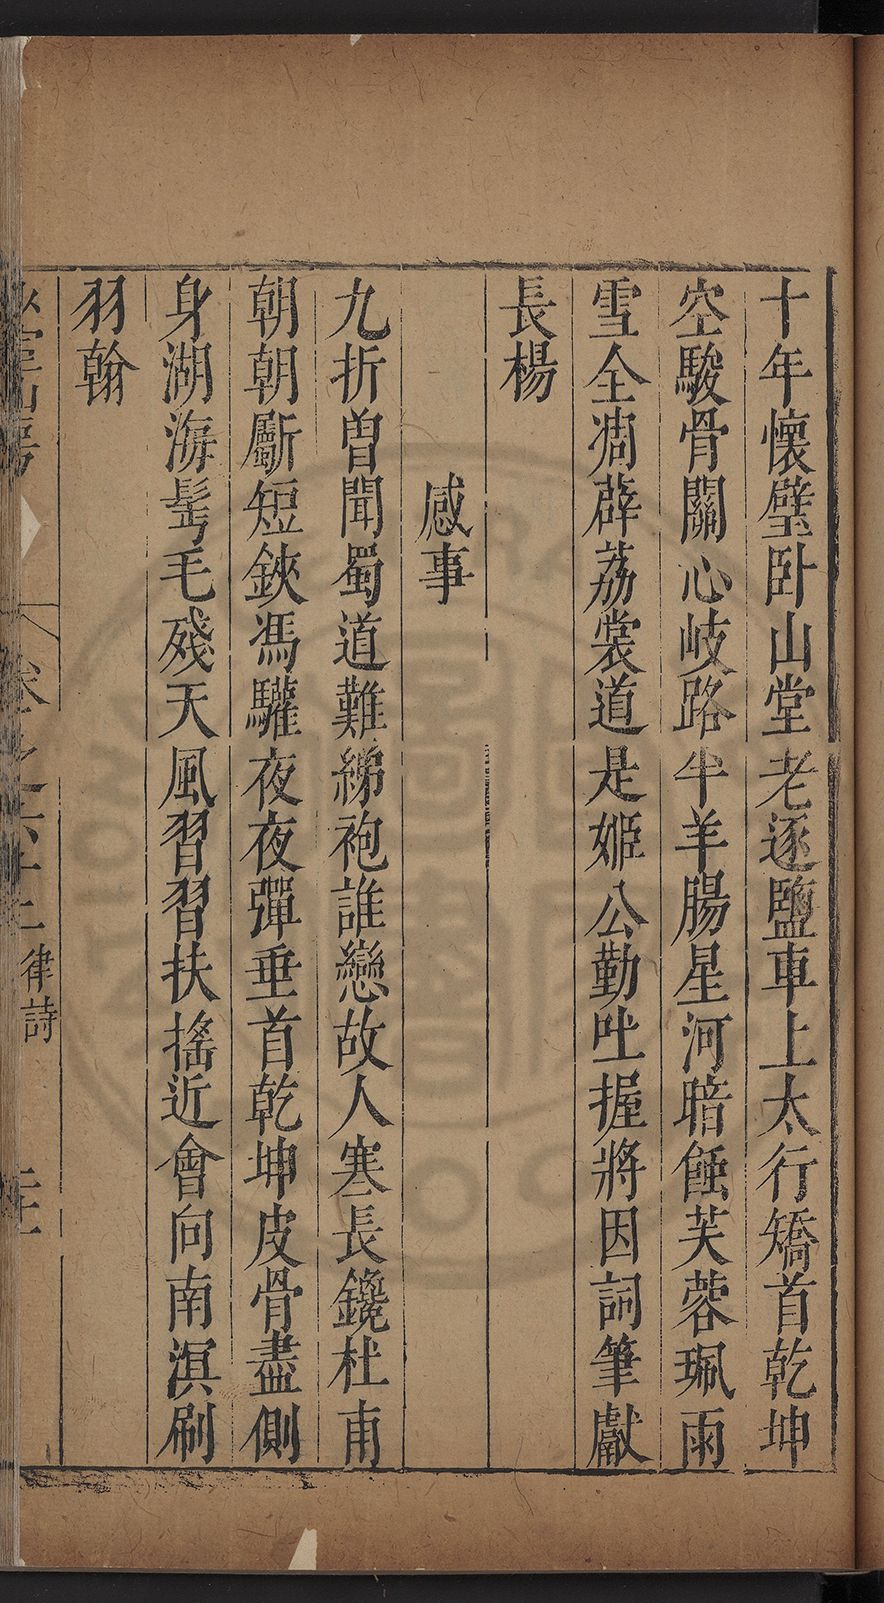 十年懷璧卧山堂老逐鹽車上太行矯首乾坤
空駿骨關心岐路半羊腸星河暗蝕芙蓉珮雨
雪全凋薜荔裳道是姬公勤吐握將因詞筆獻
長楊
感事
九折曽聞蜀道難綈袍誰戀故人寒長鑱杜甫
朝朝斸短鋏馮驩夜夜彈垂首乾坤皮骨盡側
身湖海髩毛殘天風習習扶搖近會向南溟刷
羽翰
卷之
律詩